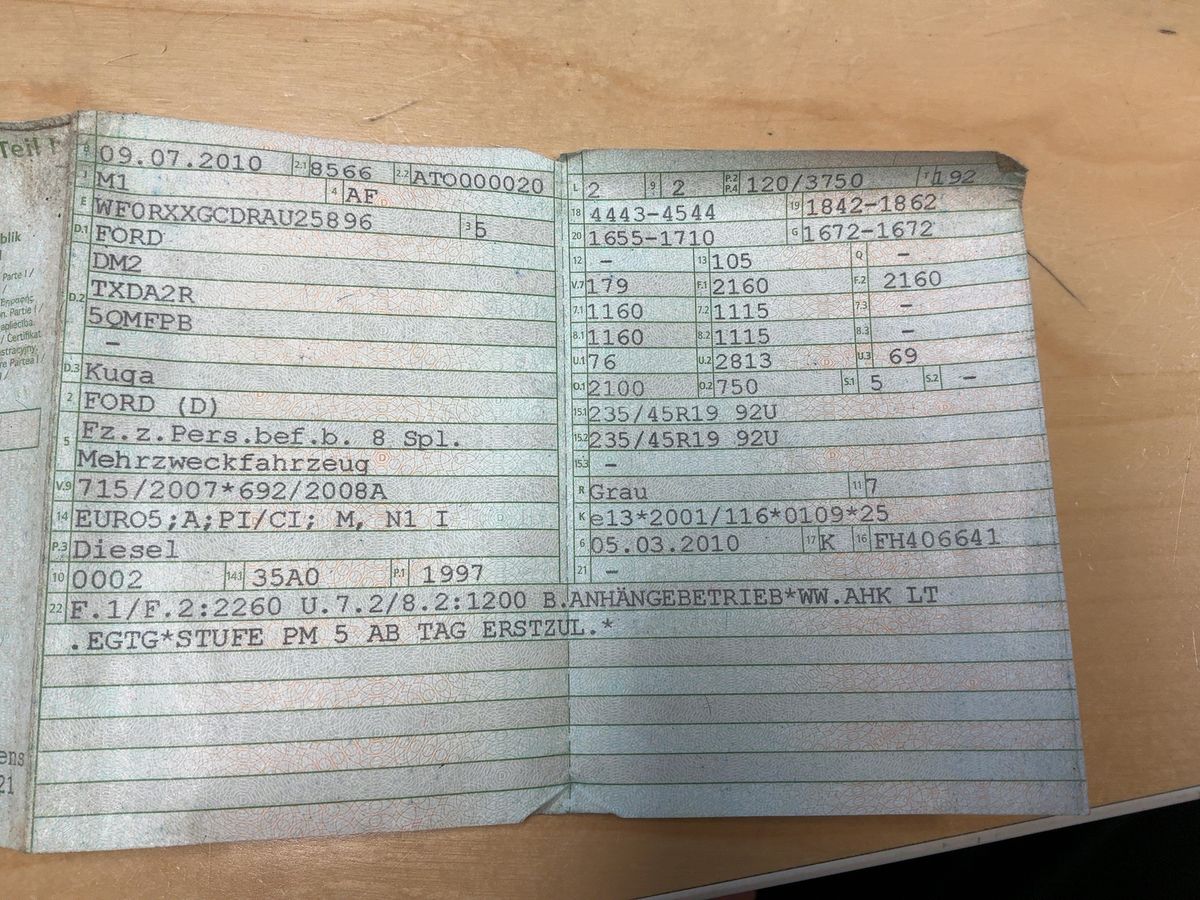 Teil I
B 09.07.2010 2.1 8566 2.2 ATO000020
J M1 4 AF
E WF0RXXGCDRAU25896 3 5
D.1 FORD
DM2
D.2 TXDA2R
5QMFPB
–
D.3 Kuga
2 FORD (D)
5 Fz.z.Pers.bef.b. 8 Spl.
Mehrzweckfahrzeug
V.9 715/2007*692/2008A
14 EURO5;A;PI/CI; M, N1 I
P.3 Diesel
10 0002 14.1 35A0 P.1 1997
22 F.1/F.2:2260 U.7.2/8.2:1200 B.ANHÄNGEBETRIEB*WW.AHK LT
.EGTG*STUFE PM 5 AB TAG ERSTZUL.*
L 2 9 2 P.2 P.4 120/3750 T 192
18 4443-4544 19 1842-1862
20 1655-1710 G 1672-1672
12 – 13 105 Q –
V.7 179 F.1 2160 F.2 2160
7.1 1160 7.2 1115 7.3 –
8.1 1160 8.2 1115 8.3 –
U.1 76 U.2 2813 U.3 69
O.1 2100 O.2 750 S.1 5 S.2 –
15.1 235/45R19 92U
15.2 235/45R19 92U
15.3 –
R Grau 11 7
K e13*2001/116*0109*25
6 05.03.2010 17 K 16 FH406641
21 –
blik
Parte I /
on. Partie I /
/ Certifikat
re Partea I /
ens
21